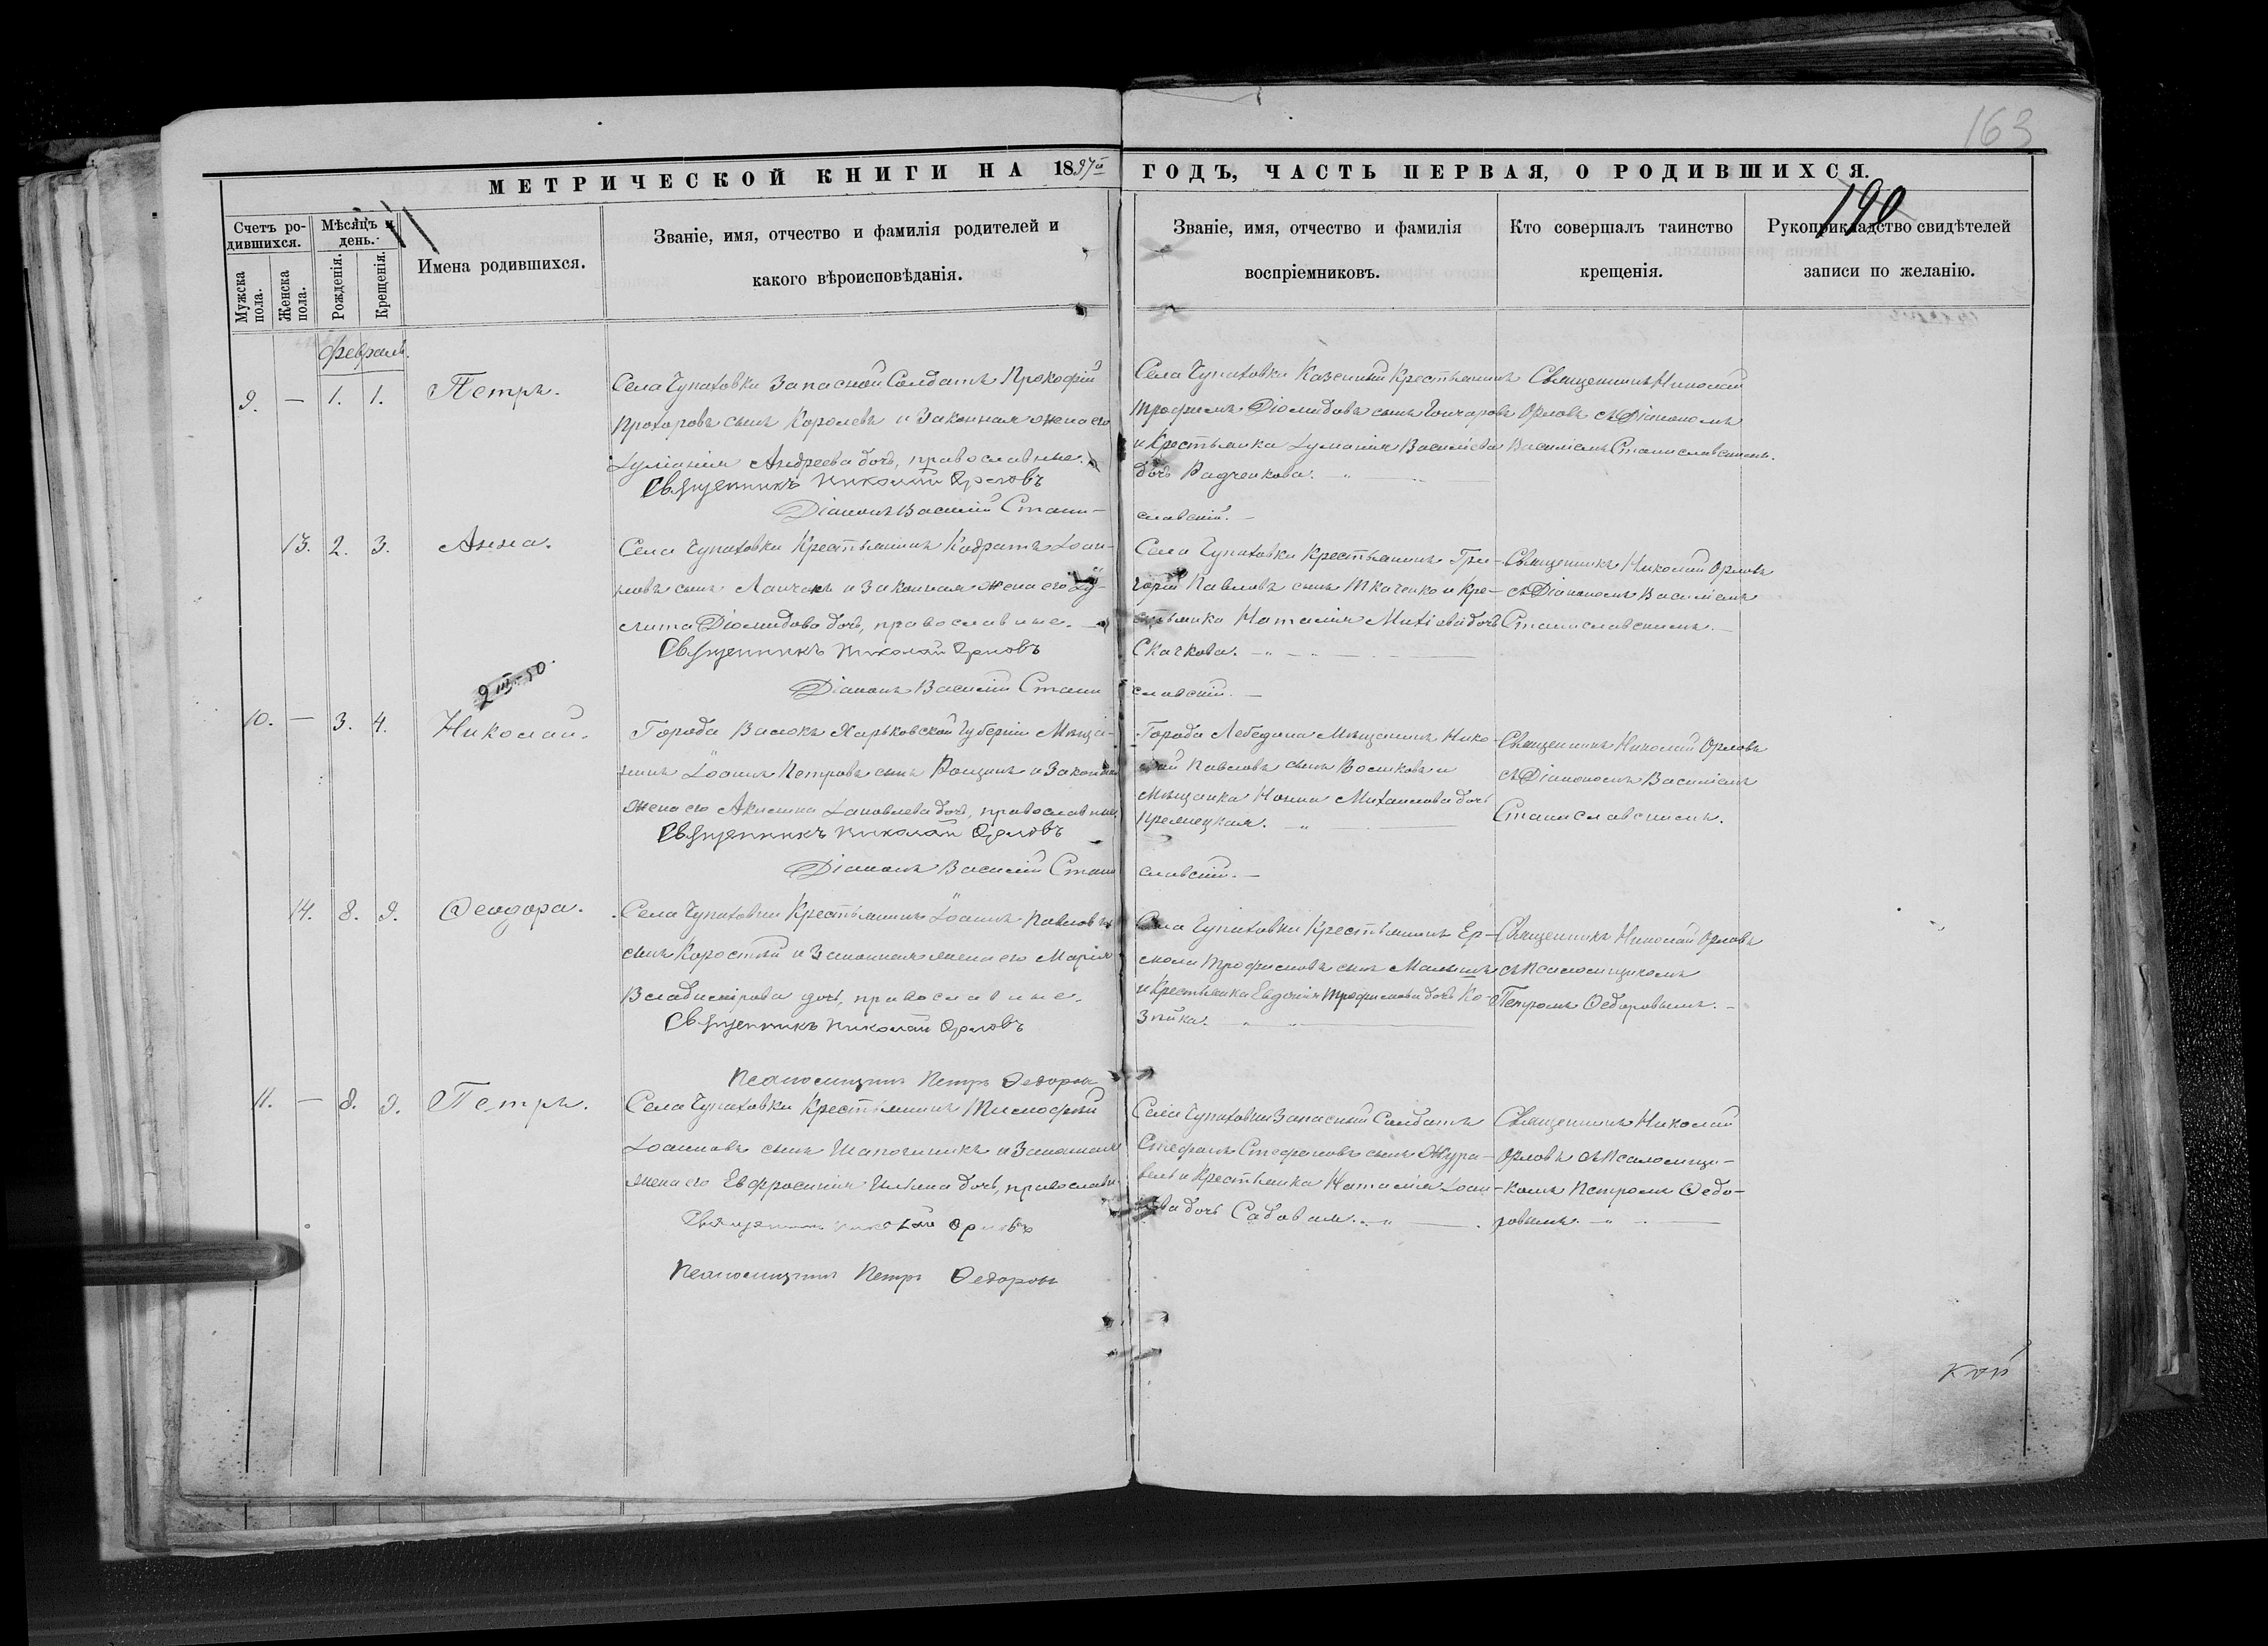 163
МЕТРИЧЕСКОЙ КНИГИ НА 1897й ГОДЪ, ЧАСТЬ ПЕРВАЯ, О РОДИВШИХСЯ.
190
Счетъ ро-
дившихся.
Мужска пола.
Женска пола.
Мѣсяцъ и
день.
Рожденія.
Крещенія.
Имена родившихся.
Званіе, имя, отчество и фамилія родителей и
какого вѣроисповѣданія.
Званіе, имя, отчество и фамилія
воспріемниковъ.
Кто совершалъ таинство
крещенія.
Рукоприкладство свидѣтелей
записи по желанію.
Февраль.
9. — 1. 1. Петръ.
Села Чупаховки Запасной Солдатъ Прокофій
Прохоровъ сынъ Королевъ и Законная жена его
Іуліанія Андреева дочь, православные.
Священникъ Николай Орловъ
Діаконъ Василій Стани-
славскій. —
Села Чупаховки Казенный Крестьянинъ
Трофимъ Діомидовъ сынъ Гончаровъ
и Крестьянка Іуліанія Василіева
дочь Радченкова. —
Священникъ Николай
Орловъ съ Діакономъ
Василіемъ Станиславскимъ.
13. 2. 3. Анна.
Села Чупаховки Крестьянинъ Кодратъ Іоан-
новъ сынъ и Законная жена его Іу-
литта Діомидова дочь, православные. —
Священникъ Николай Орловъ
Діаконъ Василій Стани
славскій. —
Села Чупаховки Крестьянинъ Гри-
горій Павловъ сынъ Ткаченко и Кре-
стьянка Наталія Михіева дочь
Скачкова. —
Священникъ Николай Орловъ
съ Діакономъ Василіемъ
Станиславскимъ. —
2 III-50.
10. — 3. 4. Николай.
Города Валокъ Харьковской Губерніи Мѣща-
нинъ Іоаннъ Петровъ сынъ Рощинъ и Законная
жена его Акилина Іаковлева дочь, православные.
Священникъ Николай Орловъ
Діаконъ Василій Стани
славскій. —
Города Лебедина Мѣщанинъ Нико-
лай Павловъ сынъ и
Мѣщанка Михаилова дочь
Священникъ Николай Орловъ
съ Діакономъ Василіемъ
Станиславскимъ.
14. 8. 9. Ѳеодора.
Села Чупаховки Крестьянинъ Іоаннъ Павловъ
сынъ Коростій и Законная жена его Марія
Владимірова дочь, православные.
Священникъ Николай Орловъ
Псаломщикъ Петръ Ѳедоровъ
Села Чупаховки Крестьянинъ Ер-
молай Трофимовъ сынъ Малышъ
и Крестьянка Евдокія Трофимова дочь Ко-
зѣйка.
Священникъ Николай Орловъ
съ Псаломщикомъ
Петромъ Ѳедоровымъ. —
11. — 8. 9. Петръ.
Села Чупаховки Крестьянинъ Тимофей
Іоанновъ сынъ Шапочникъ и Законная
жена его Евфросинія Ильина дочь, православн
Священникъ Николай Орловъ
Псаломщикъ Петръ Ѳедоровъ
Села Чупаховки Запасный Солдатъ
Стефанъ Стефановъ сынъ Жура-
вель и Крестьянка Наталія Іоан-
нова дочь Садовая. —
Священникъ Николай
Орловъ съ Псаломщи-
комъ Петромъ Ѳедо-
ровымъ. —